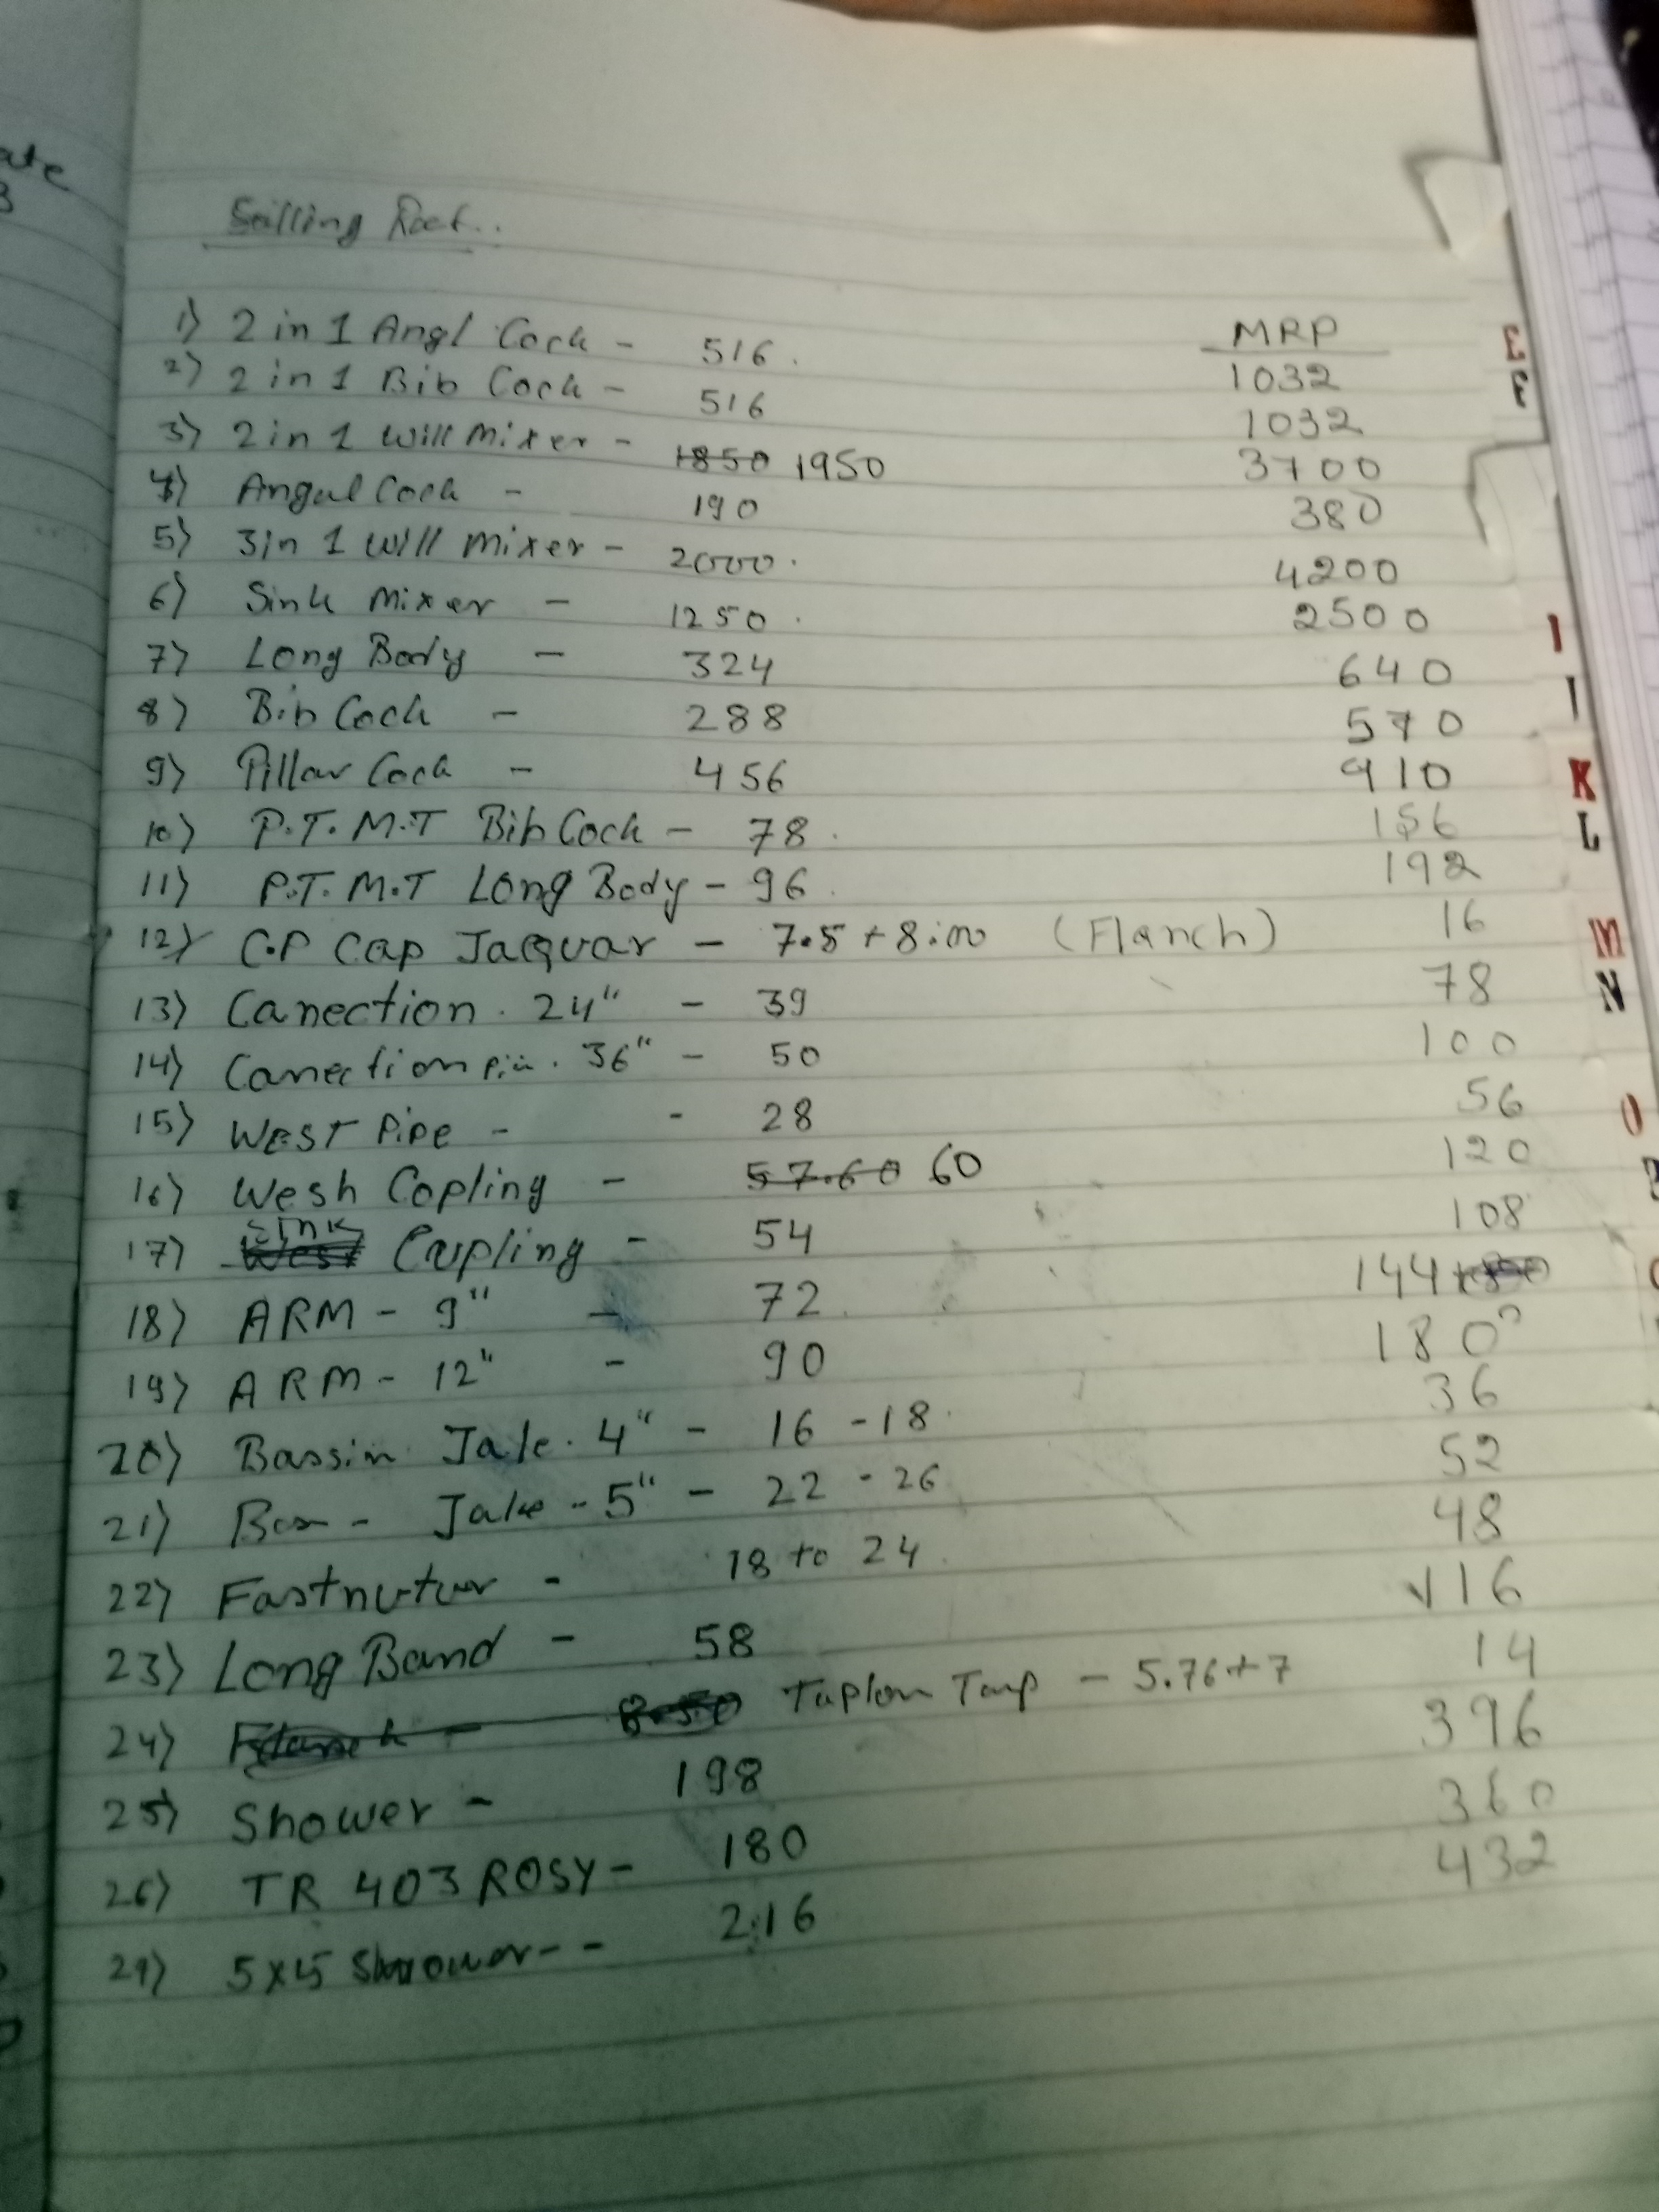 Seilling Raet..
MRP
1) 2 in 1 Angl Cock - 516. 1032
2) 2 in 1 Bib Cock - 516 1032
3) 2 in 1 Will Mixer - 1850 1950 3700
4) Angul Cock - 190 380
5) 3in 1 Will Mixer - 2000. 4200
6) Sink Mixer - 1250. 2500
7) Long Body - 324 640
8) Bib Cock - 288 570
9) Pillar Cock - 456 910
10) P.T.M.T Bib Cock - 78. 156
11) P.T.M.T Long Body - 96. 192
12) C.P Cap Jaquar - 7.5 + 8:00 (Flanch) 16
13) Canection. 24" - 39 78
14) Canection 36" - 50 100
15) WEST Pipe - - 28 56
16) Wesh Copling - 57.60 60 120
17) West Sink Cupling - 54 108
18) ARM - 9" - 72 144
19) ARM - 12" - 90 180
20) Bassin Jale. 4" - 16 - 18 36
21) Jale - 5" - 22 - 26 52
22) Fastnutur - 18 to 24 48
23) Long Band - 58 116
24) Flanch - 8.50 Taplon Tap - 5.76 + 7 14
25) Shower - 198 396
26) TR 403 ROSY - 180 360
27) 5x5 Shower - - 216 432
ate
3
E
F
I
I
K
L
M
N
O